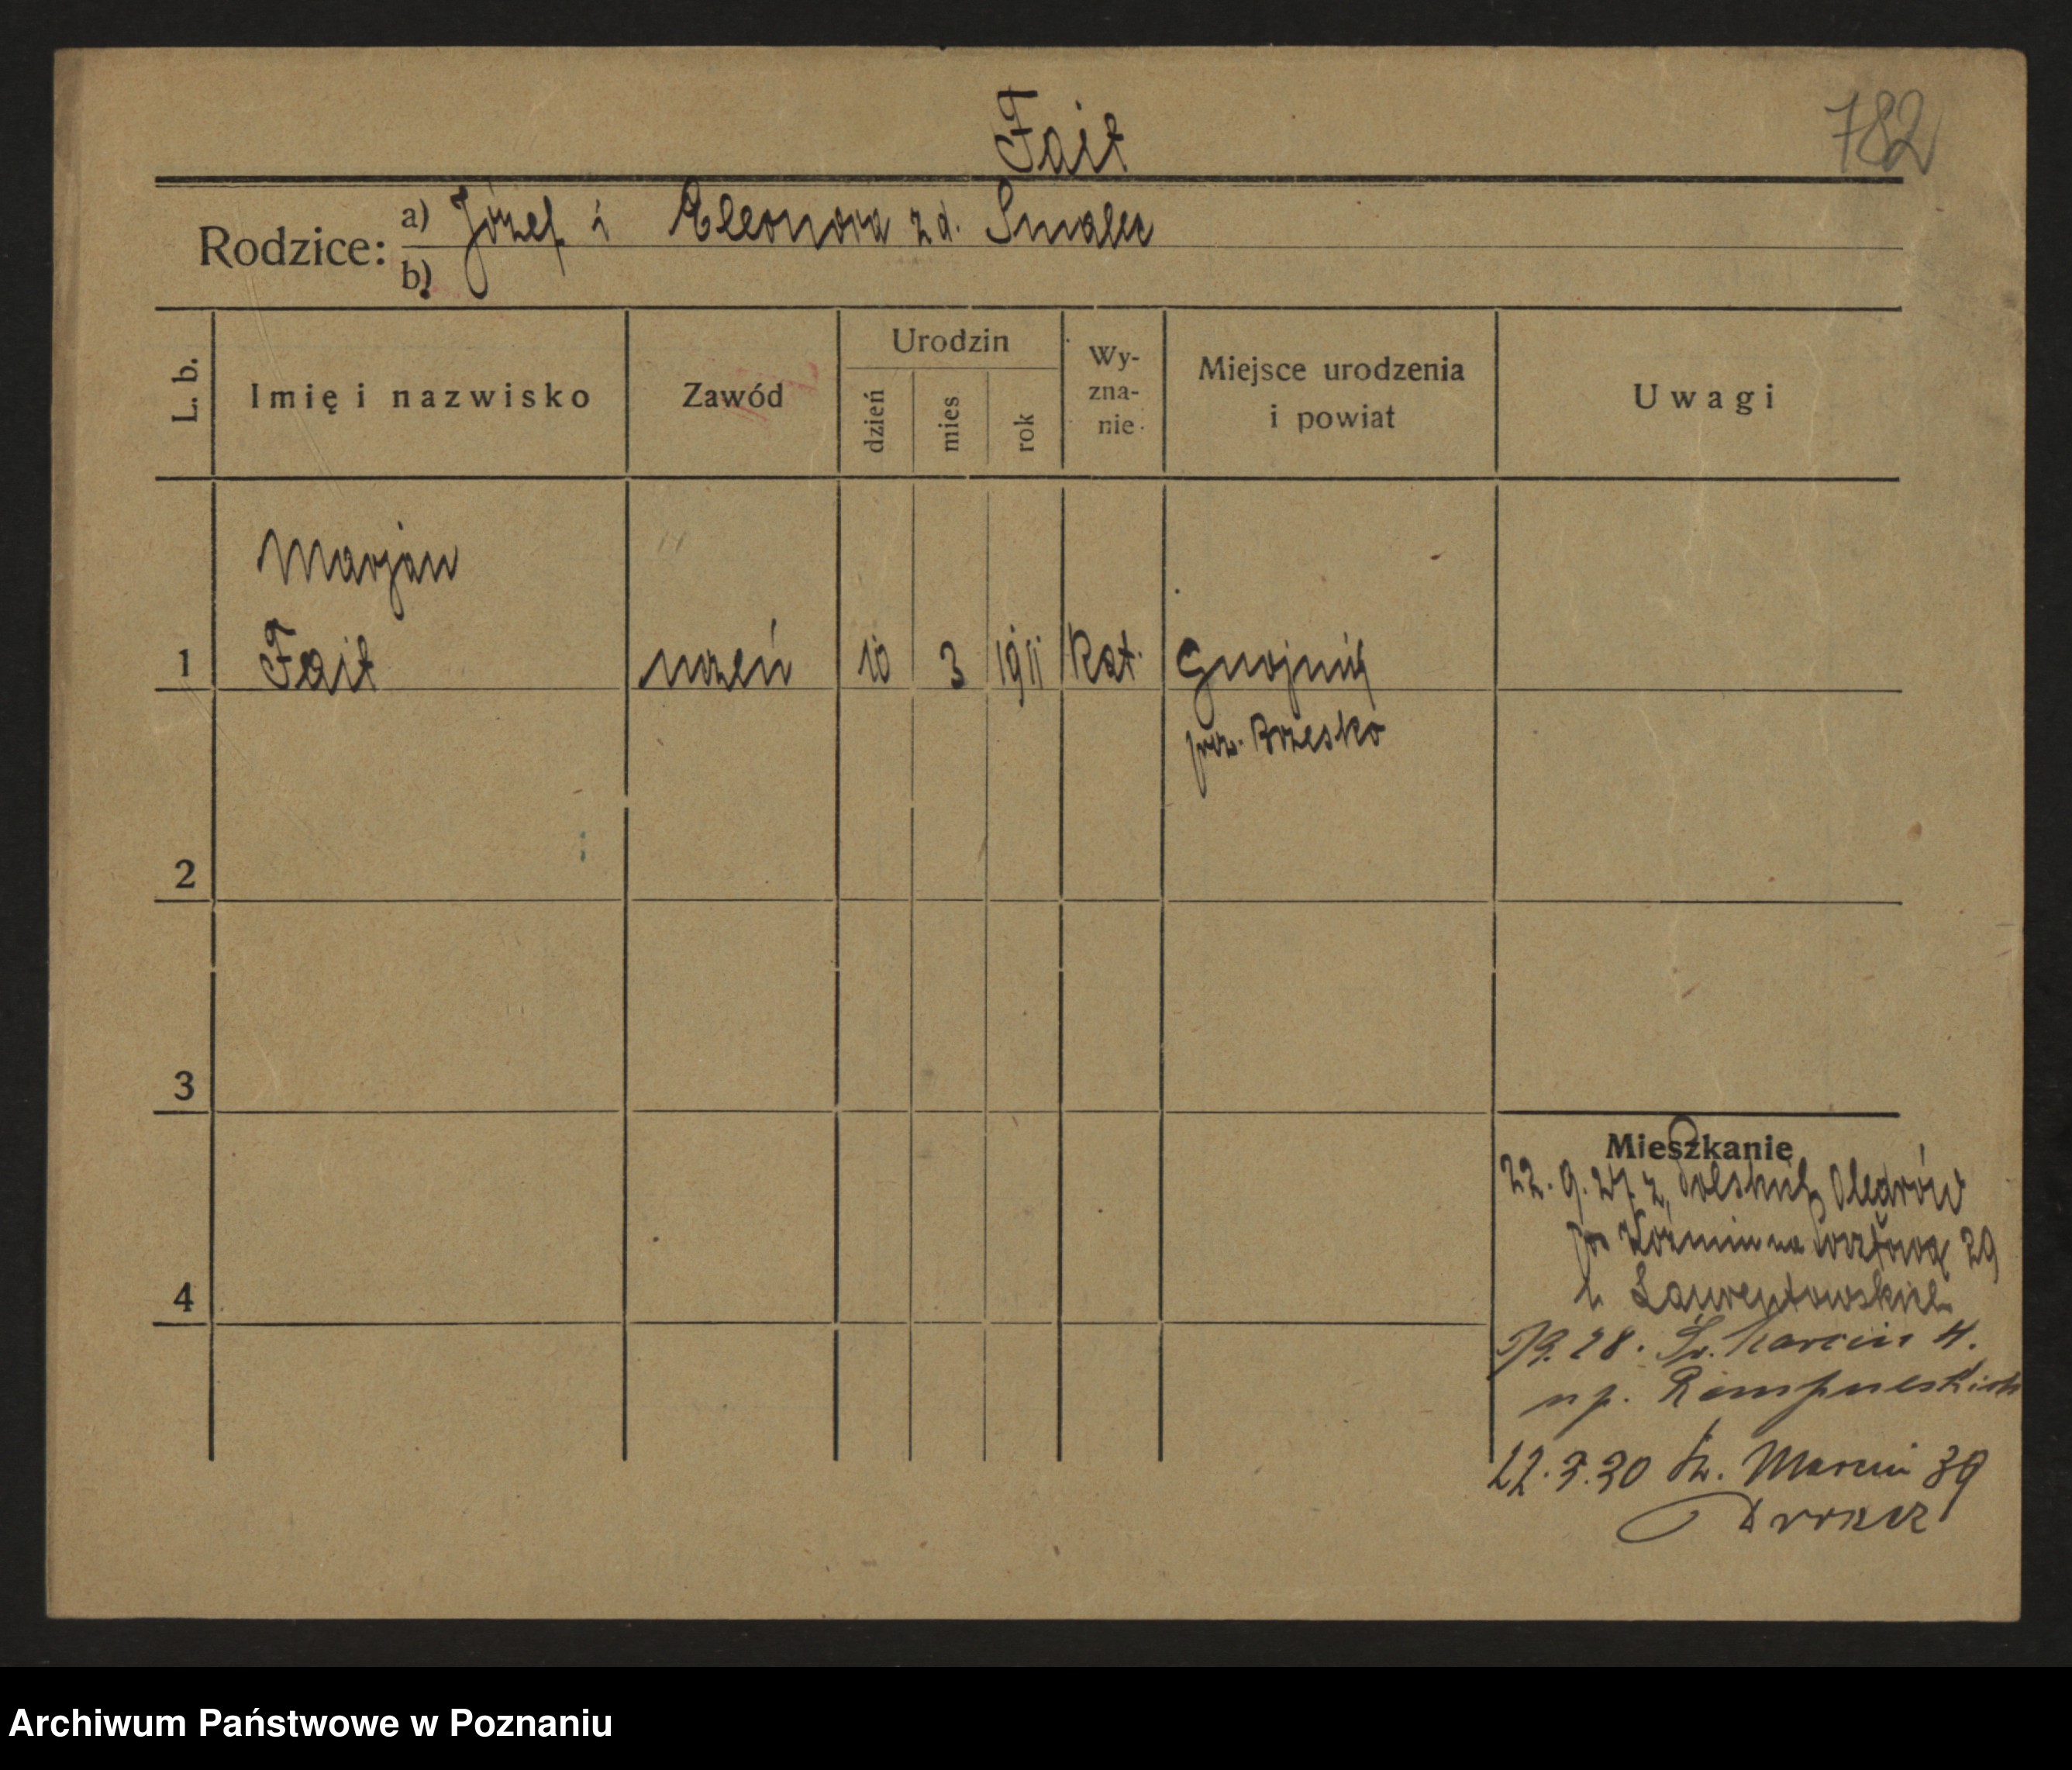 782
Fait
Rodzice: a) Józef i Eleonora z d. Smalec
b)
L. b.
Imię i nazwisko
Zawód
Urodzin
dzień
mies
rok
Wy-
zna-
nie
Miejsce urodzenia
i powiat
Uwagi
Marjan
1 Fait uczeń 10 3 1911 kat. Gnojnik
pow. Brzesko
2
3
4
Mieszkanie
22. 9. 27 z Polskich Olędrów
Koźmin na Pocztową 29
u
28. Św. Marcin 4.
u p.
22.3.30 Św. Marcin 39
Archiwum Państwowe w Poznaniu